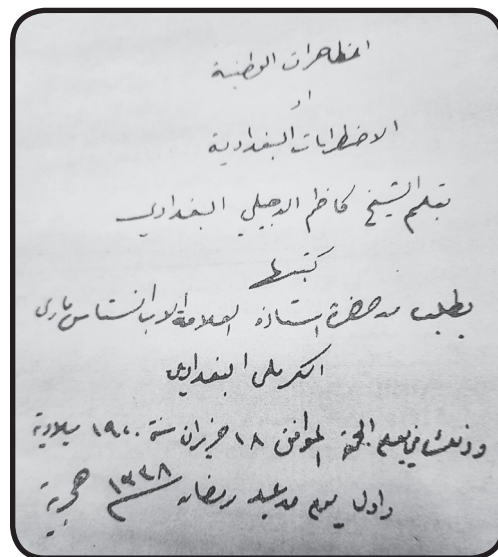 المظاهرات الوطنية
او
الاضطرابات البغدادية
بقلم الشيخ كاظم الدجيلي البغدادي
كتبها
بطلب من حضرة استاذه العلامة الاب انستاس ماري
الكرملي البغدادي
وذلك في يوم الجمعة الموافق ١٨ حزيران سنة ١٩٢٠ ميلادية
واول يوم من عيد رمضان ١٣٣٨ هجرية